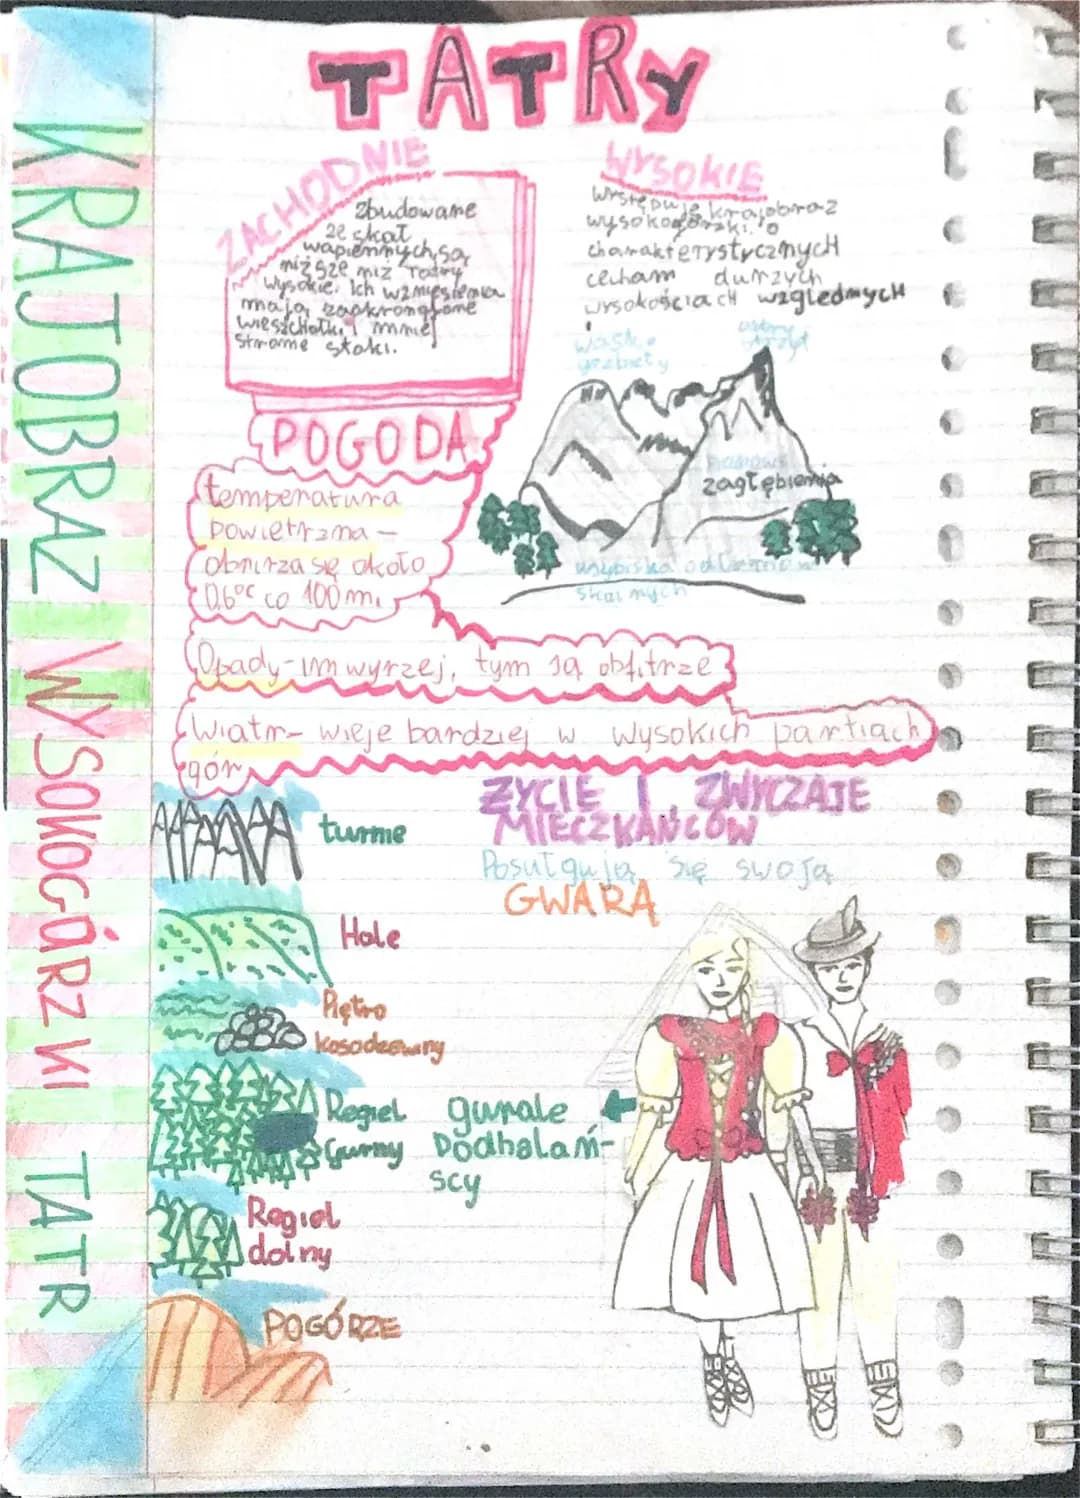 TATRY
KRAJOBRAZ WYSOKOGÓRZKI TATR
ZACHODNIE
zbudowane
ze skał
wapiennych, są
niższe niż Tatry
wysokie. Ich wzniesienia
mają zaokronglone
wieszchołki i mniej
strome stoki.
WYSOKIE
Występuje krajobraz
wysokogórzki. o
charakterystycznycH
cecham durzych
wysokościacH względnycH
wąskie
grzbiety
ostry
szczyt
zagłębienia
usypiska odłamków
skalnych
POGODA
temperatura
powietrzna -
obnirza się około
0,6°c co 100 m.
Opady - im wyrzej, tym są obfitrze
Wiatr - wieje bardziej w wysokich partiach
gór
turnie
Hale
Piętro
kosodzewiny
Regiel
Gurny
Regiel
dolny
POGÓRZE
ŻYCIE I ZWYCZAJE
MIECZKAŃCÓW
Posułgują się swoją
GWARĄ
gurale
Podhalań-
scy